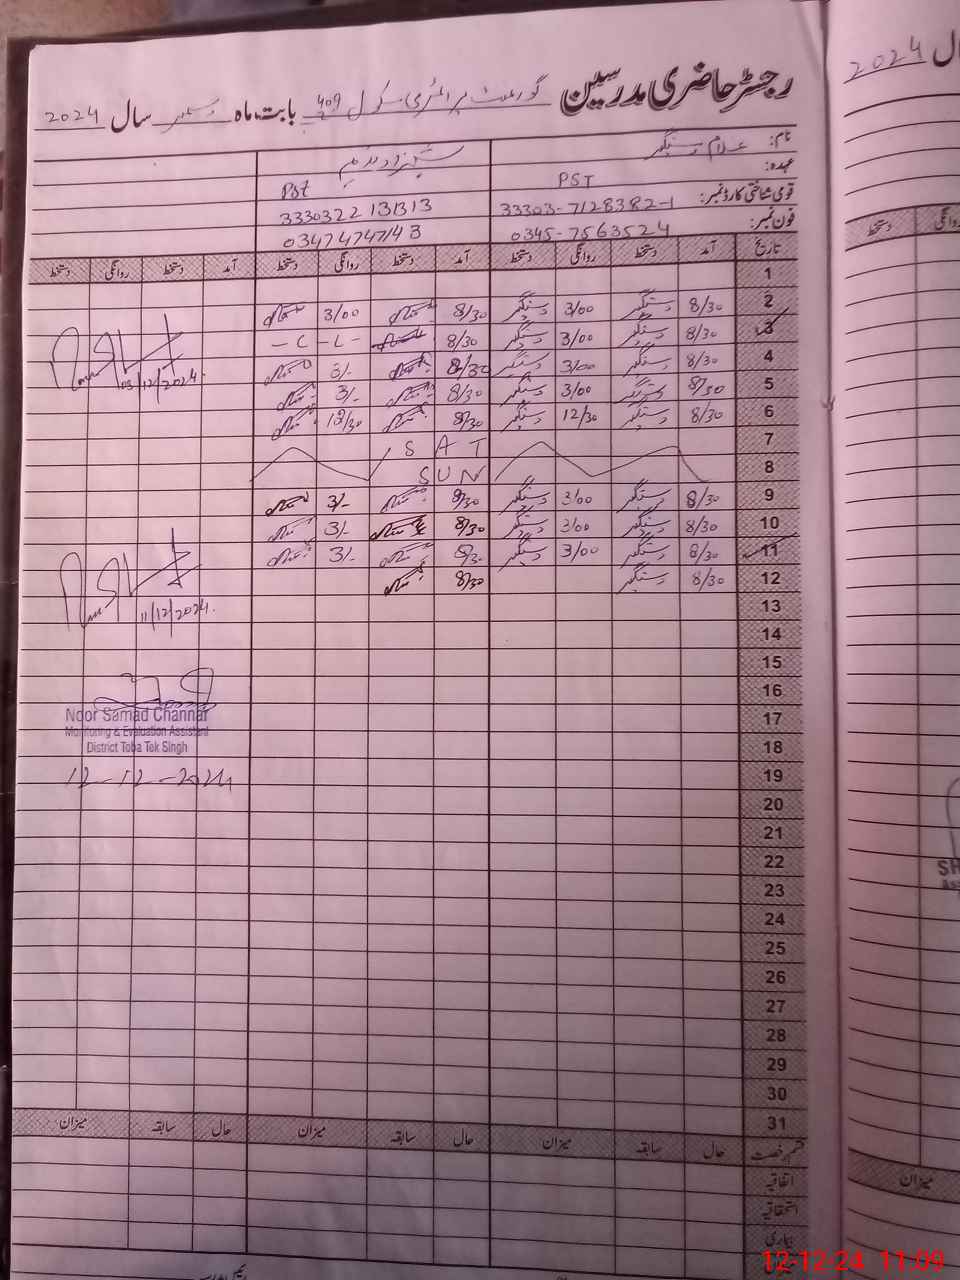 رجسٹر حاضری مدرسین گورنمنٹ پرائمری سکول 409 بابت ماہ دسمبر سال 2024
نام: غلام دستگیر
عہدہ: PST PST
قومی شناختی کارڈ نمبر: 33303-7128382-1 3330322131313
فون نمبر: 0345-7563524 03474747143
تاریخ آمد دستخط روانگی دستخط آمد دستخط روانگی دستخط آمد دستخط روانگی دستخط
1
2 8/30 دستگیر 3/00 دستگیر 8/30 3/00
3 8/30 دستگیر 3/00 دستگیر 8/30 - C - L -
4 8/30 دستگیر 3/00 دستگیر 8/30 3/-
5 8/30 دستگیر 3/00 دستگیر 8/30 3/-
6 8/30 دستگیر 12/30 دستگیر 8/30 12/30
7 SAT
8 SUN
9 8/30 دستگیر 3/00 دستگیر 8/30 3/-
10 8/30 دستگیر 3/00 دستگیر 8/30 3/-
11 8/30 دستگیر 3/00 دستگیر 8/30 3/-
12 8/30 دستگیر 8/30
13
14
15
16
17
18
19
20
21
22
23
24
25
26
27
28
29
30
31
03/12/2024.
11/12/2024.
Noor Samad Channar
Monitoring & Evaluation Assistant
District Toba Tek Singh
12-12-2024
قسم رخصت حال سابقہ میزان حال سابقہ میزان حال سابقہ میزان
اتفاقیہ
استحقاقیہ
بیماری
سال 2024
روانگی دستخط
SH
میزان
12-12-24 11:09